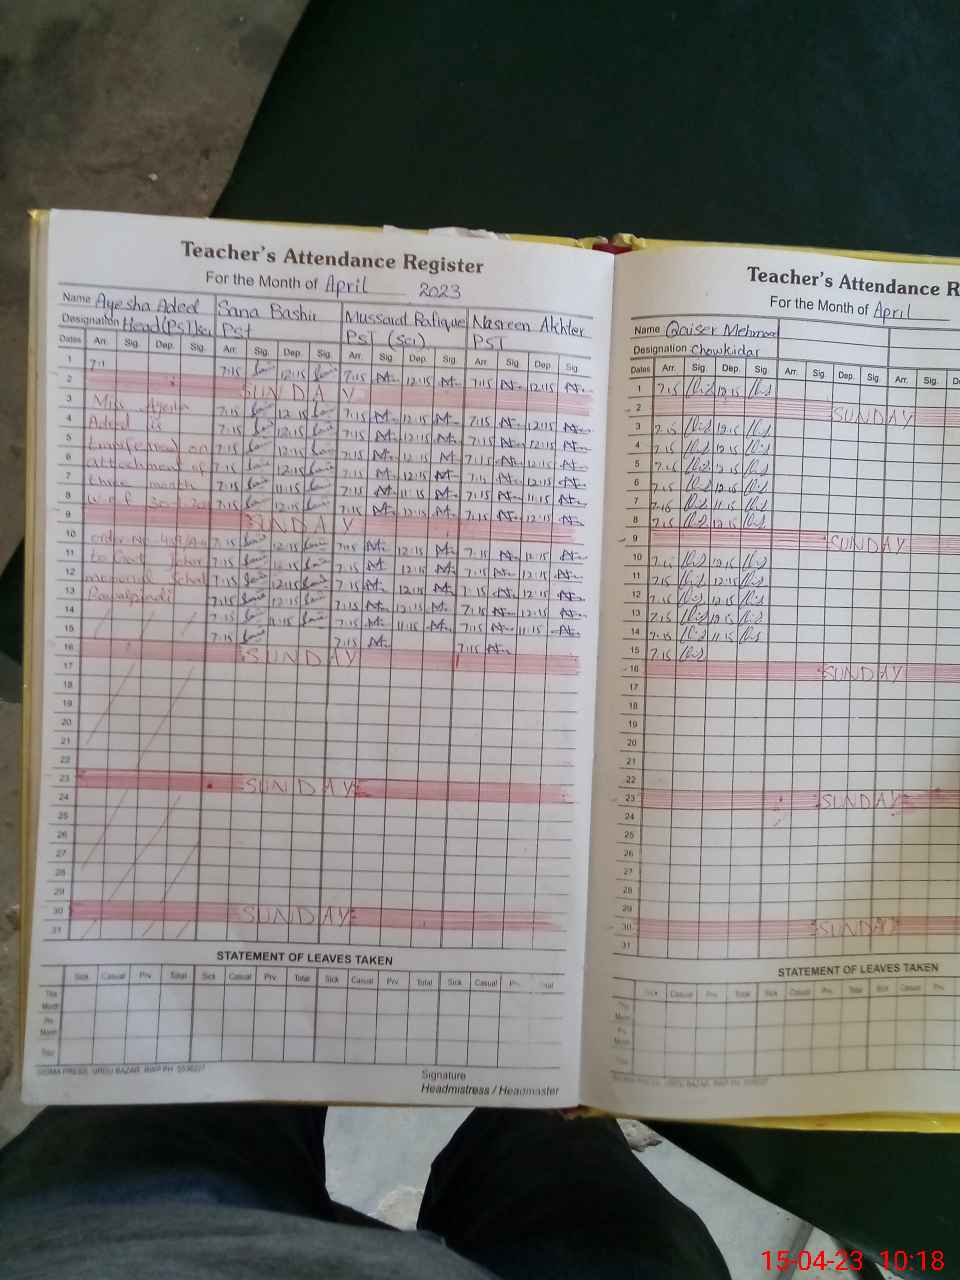 Teacher's Attendance Register
For the Month of April 2023
Name Ayesha Adeel Sana Bashir Mussarat Rafique Nasreen Akhter
Designation Head (PST) Pst PST (Sci) PST
Dates Arr. Sig. Dep. Sig. Arr. Sig. Dep. Sig. Arr. Sig. Dep. Sig. Arr. Sig. Dep. Sig.
1 7:15 12:15 7:15 12:15 7:15 12:15
2 SUNDAY
3 Miss Ayesha 7:15 12:15 7:15 12:15 7:15 12:15
4 Adeel is 7:15 12:15 7:15 12:15 7:15 12:15
5 transferred on 7:15 12:15 7:15 12:15 7:15 12:15
6 attachment of 7:15 12:15 7:15 12:15 7:15 12:15
7 three month 7:15 11:15 7:15 11:15 7:15 11:15
8 w.e.f 7:15 12:15 7:15 12:15 7:15 12:15
9 SUNDAY
10 order No 7:15 12:15 7:15 12:15 7:15 12:15
11 to Govt 7:15 12:15 7:15 12:15 7:15 12:15
12 memorial School 7:15 12:15 7:15 12:15 7:15 12:15
13 Rawalpindi 7:15 12:15 7:15 12:15 7:15 12:15
14 7:15 11:15 7:15 11:15 7:15 11:15
15 7:15 7:15 7:15
16 SUNDAY
17
18
19
20
21
22
23 SUNDAY
24
25
26
27
28
29
30 SUNDAY
31
STATEMENT OF LEAVES TAKEN
Sick Casual Prv. Total Sick Casual Prv. Total Sick Casual Prv. Total Sick Casual Prv. Total
This Month
Prv. Month
Total
SIGMA PRESS, URDU BAZAR, RWP PH
Signature
Headmistress / Headmaster
Teacher's Attendance R
For the Month of April
Name Qaiser Mehmood
Designation Chowkidar
Dates Arr. Sig. Dep. Sig. Arr. Sig. Dep. Sig. Arr. Sig. De
1 7:15 12:15
2 SUNDAY
3 7:15 12:15
4 7:15 12:15
5 7:15 12:15
6 7:15 12:15
7 7:15 11:15
8 7:15 12:15
9 SUNDAY
10 7:15 12:15
11 7:15 12:15
12 7:15 12:15
13 7:15 12:15
14 7:15 11:15
15 7:15
16 SUNDAY
17
18
19
20
21
22
23 SUNDAY
24
25
26
27
28
29
30 SUNDAY
31
STATEMENT OF LEAVES TAKEN
Sick Casual Prv. Total Sick Casual Prv. Total Sick Casual Prv.
This Month
Prv. Month
Total
15-04-23 10:18